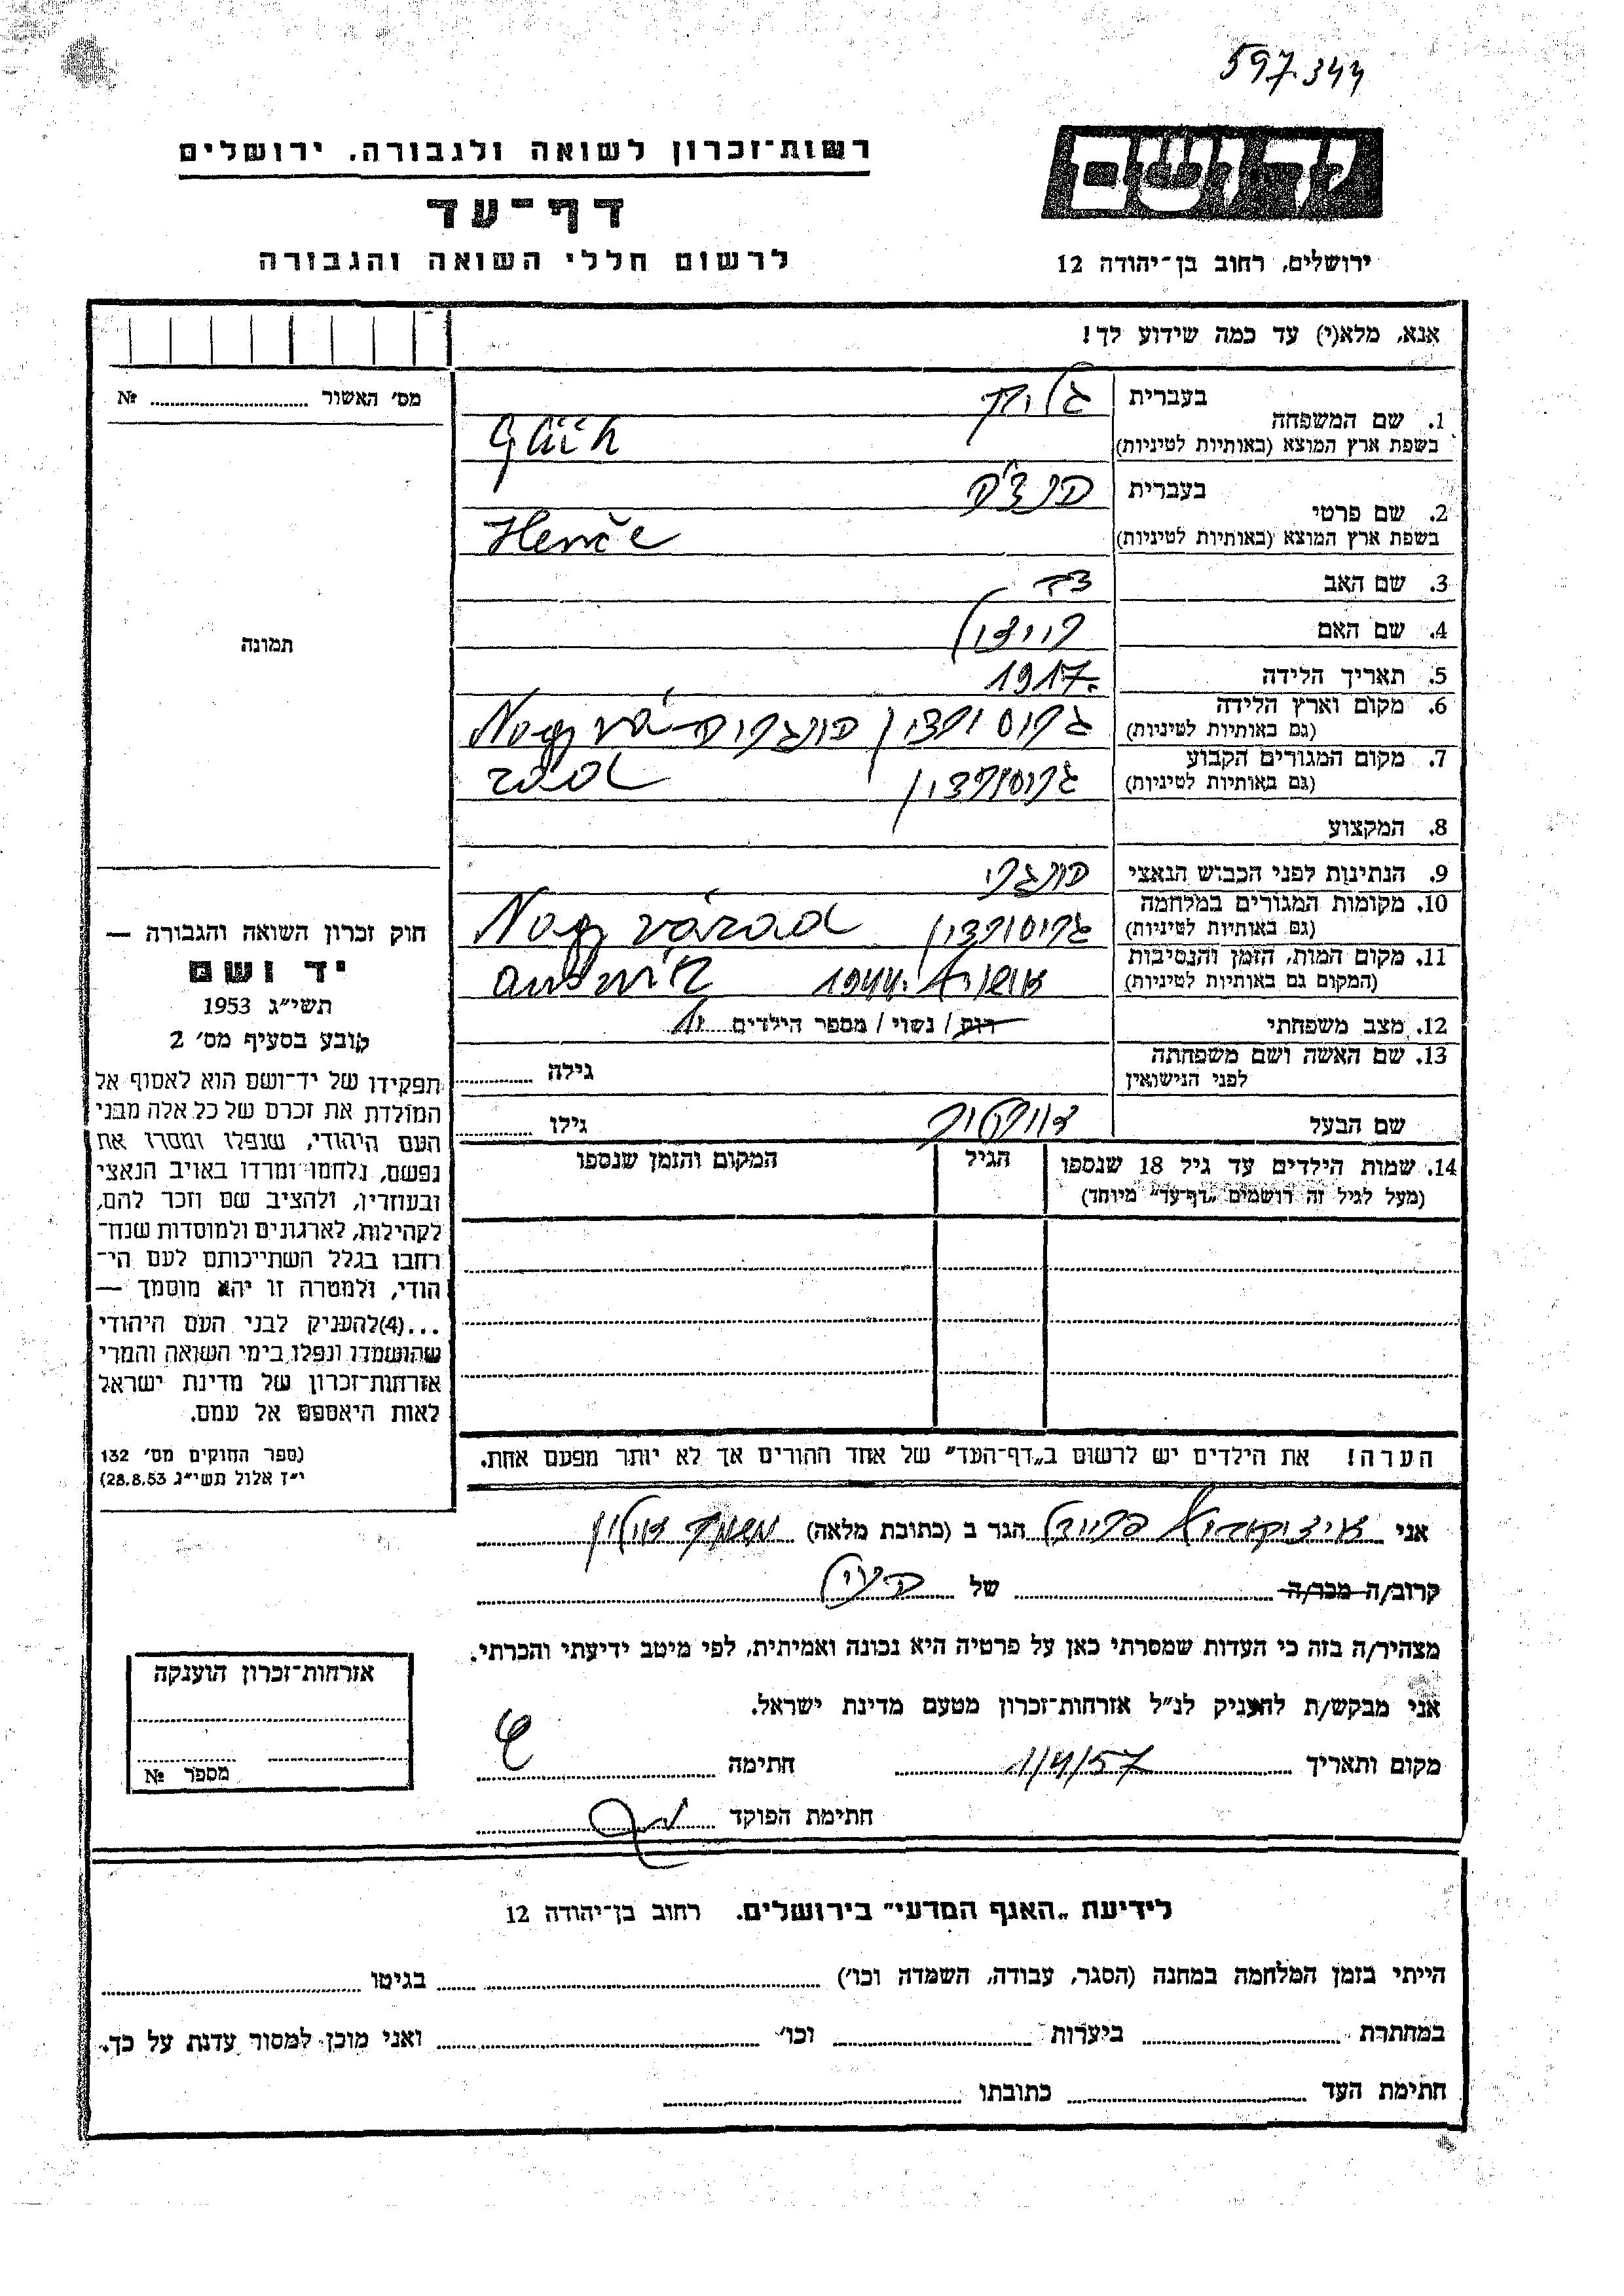 597.344
רשות־זכרון לשואה ולגבורה. ירושלים
דף־עד
לרשום חללי השואה והגבורה
ידושם
ירושלים, רחוב בן־יהודה 12
אנא, מלא(י) עד כמה שידוע לך!
מס׳ האשור № 
תמונה
1. שם המשפחה בעברית גליק
בשפת ארץ המוצא (באותיות לטיניות) Glück
2. שם פרטי בעברית הנצ'ה
בשפת ארץ המוצא (באותיות לטיניות) Henče
3. שם האב
4. שם האם
5. תאריך הלידה 1917.
6. מקום וארץ הלידה (גם באותיות לטיניות) גרוסורדין הונגריה Nagyvá-
7. מקום המגורים הקבוע (גם באותיות לטיניות) גרוסורדין rad
8. המקצוע
9. הנתינות לפני הכבוש הנאצי הונגרי
10. מקומות המגורים במלחמה (גם באותיות לטיניות) גרוסורדין Nagyvárad
11. מקום המות, הזמן והנסיבות (המקום גם באותיות לטיניות) 1944
12. מצב משפחתי רוק / נשוי / מספר הילדים
13. שם האשה ושם משפחתה לפני הנישואין גילה
שם הבעל גילו
14. שמות הילדים עד גיל 18 שנספו הגיל המקום והזמן שנספו
(מעל לגיל זה רושמים „דף־עד״ מיוחד)
הערה! את הילדים יש לרשום ב„דף־העד״ של אחד ההורים אך לא יותר מפעם אחת.
חוק זכרון השואה והגבורה —
יד ושם
תשי״ג 1953
קובע בסעיף מס׳ 2
תפקידו של יד־ושם הוא לאסוף אל
המולדת את זכרם של כל אלה מבני
העם היהודי, שנפלו ומסרו את
נפשם, נלחמו ומרדו באויב הנאצי
ובעוזריו, ולהציב שם וזכר להם,
לקהילות, לארגונים ולמוסדות שנח־
רחבו בגלל השתייכותם לעם הי־
הודי, ולמטרה זו יהא מוסמך —
...(4)להעניק לבני העם היהודי
שהושמדו ונפלו בימי השואה והמרי
אזרחות־זכרון של מדינת ישראל
לאות היאספם אל עמם.
(ספר החוקים מס׳ 132
י״ז אלול תשי״ג 28.8.53)
אני הגר ב (כתובת מלאה)
קרוב/ה מכר/ה של
מצהיר/ה בזה כי העדות שמסרתי כאן על פרטיה היא נכונה ואמיתית, לפי מיטב ידיעתי והכרתי.
אני מבקש/ת להעניק לנ״ל אזרחות־זכרון מטעם מדינת ישראל.
מקום ותאריך 1/4/57 חתימה
חתימת הפוקד
אזרחות־זכרון הוענקה
מספר №
לידיעת „האגף המדעי״ בירושלים. רחוב בן־יהודה 12
הייתי בזמן המלחמה במחנה (הסגר, עבודה, השמדה וכו׳) בגיטו
במחתרת ביערות וכו׳ ואני מוכן למסור עדות על כך.
חתימת העד כתובתו